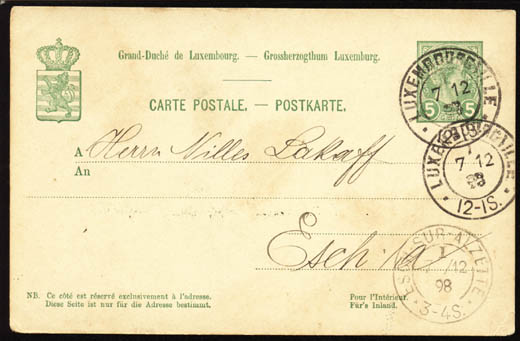 Grand-Duché de Luxembourg. — Grossherzogthum Luxemburg.
CARTE POSTALE. — POSTKARTE.
5 5
LUXEMBOURG-VILLE
7 12
98
LUXEMBOURG-VILLE
7 12
98
12-1S.
A Herrn Nilles
An
Esch
ESCH-SUR-ALZETTE
12
98
3-4S.
NB. Ce côté est réservé exclusivement à l'adresse.
Diese Seite ist nur für die Adresse bestimmt.
Pour l'Intérieur.
Für's Inland.